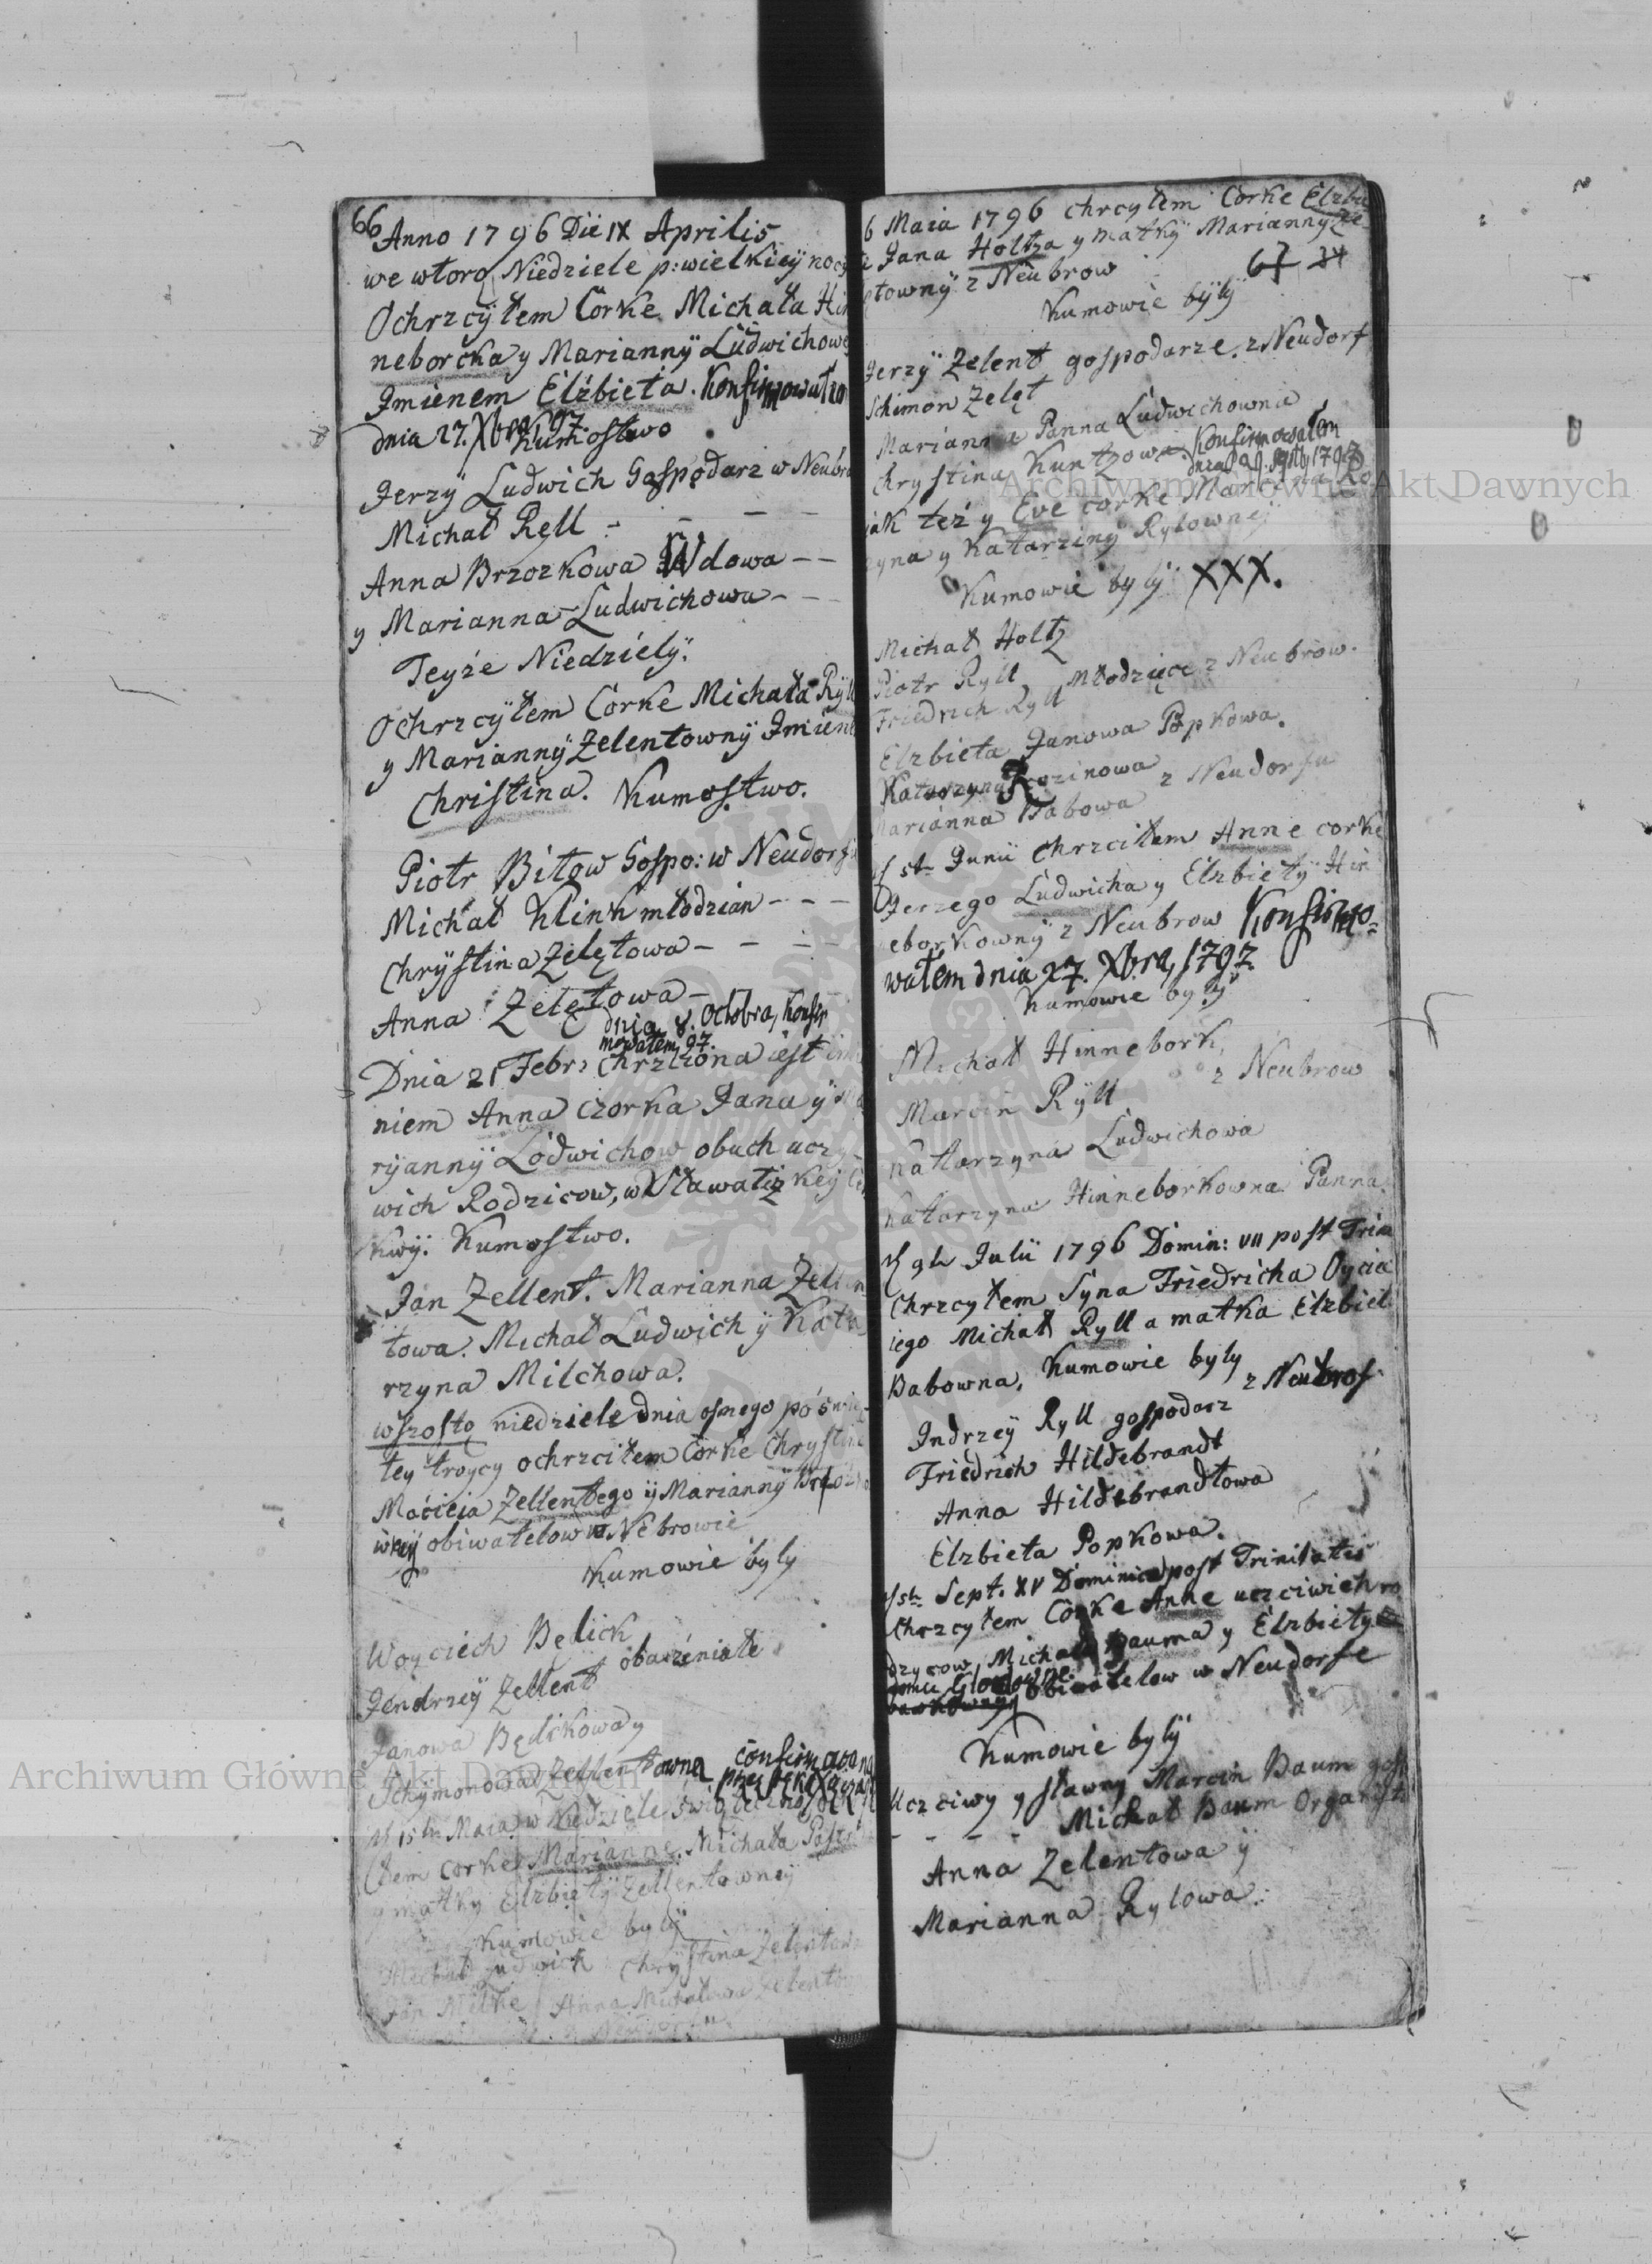 66
Anno 1796 Die IX Aprilis
we wtorą Niedziele p: wielkiey nocy
Ochrzcyłem Corke Michała Hin
neborcka y Marianny Ludwichowy
Jmieniem Elżbieta. Konfirmowałem
dnia 27. Xbra, 97.
Kumostwo
Jerzy Ludwich Gospodarz w Neubro
Michał Rell - - - -
Anna Brzozkowa Wdowa - -
y Marianna Ludwichowa - -
Teyże Niedziely.
Ochrzcyłem Corke Michała Ryll
y Marianny Zelentowny Jmieni
Christina. Kumostwo.
Piotr Bitow Gospo: w Neudorf
Michał Klink młodzian - - -
Chrystina Zelętowa - - - -
Anna Zelętowa -
dnia 8. Octobra, Konfir
mowałem, 97.
Dnia 21 Febr: Chrzciona iest imie
niem Anna Czorka Jana y Ma
ryanny Lodwichow obuch uczy-
wich Rodzicow, w Sławatizkey
kwy. Kumostwo.
Jan Zellent. Marianna Zellen
towa. Michał Ludwich y Kata
rzyna Milchowa.
w szostą niedziele dnia osmego po świę
tey troycy ochrzciłem Corke Chrystine
Macieia Zellentego y Marianny
obiwatelow w Nebrowie
Kumowie były
Woyciech Będick
obażeniałe
Jendrzey Zellent
Janowa Będikowa y
Schymonowa Zellentowna
Confirmowana
przez
15 ten Maia w Niedziele świąteczną
łem corke Marianne Michała
y matky Elżbiety Zellentowney
Kumowie były
Michał Ludwich Chrystina Zelentowa
Jan Milke Anna Michałowa Zelentow
z Neudorfu
6 Maia 1796 chrcyłem Corke Elzbie
Jana Holtza y matky Marianny Ze
lętowny z Neubrow
67 34
Kumowie były
Jerzy Zelent gospodarze z Neudorf
Schimon Zelęt
Marianna Panna Ludwichowna
Chrystina Kuntzowa. Konfirmowałem
dnia 29. 1797
jak też y Eve corke Marcina Ro
zyna y Katarziny Rylowney
Kumowie były XXX.
Michał Holtz
Piotr Ryll Młodzięce z Neubrow.
Friedrich Ryll
Elzbieta Janowa Popkowa.
Katarzyna Rozinowa
z Neudorfu
Marianna Babowa
st. Junii Chrzciłem Anne corke
Jerzego Ludwicha y Elzbiety Hin
eborkowny z Neubrow Konfirmo=
wałem dnia 27. Xbra, 1797.
Kumowie były
Michał Hinnebork
z Neubrow
Marcin Ryll
Katarzyna Ludwichowa
Katarzyna Hinneborkowna Panna
9te Julii 1796 Domin: VII post Trin
Chrzcyłem Syna Friedricha Oycia
iego Michał Ryll a matka Elzbiet
Babowna. Kumowie były
z Neubrof
Jndrzey Ryll gospodarz
Friedrich Hildebrandt
Anna Hildebrandtowa
Elzbieta Popkowa.
Sept. XV Dominica post Trinitatis
Chrzcyłem Corke Anne uczciwich ro
dzycow Michała Bauma y Elzbiety
obiwatelow w Neudorfe
Kumowie były
Uczciwy y sławny Marcin Baum gosp
- - - - Michał Baum Organist
Anna Zelentowa y
Marianna Rylowa.
Archiwum Główne Akt Dawnych
Archiwum Główne Akt Dawnych